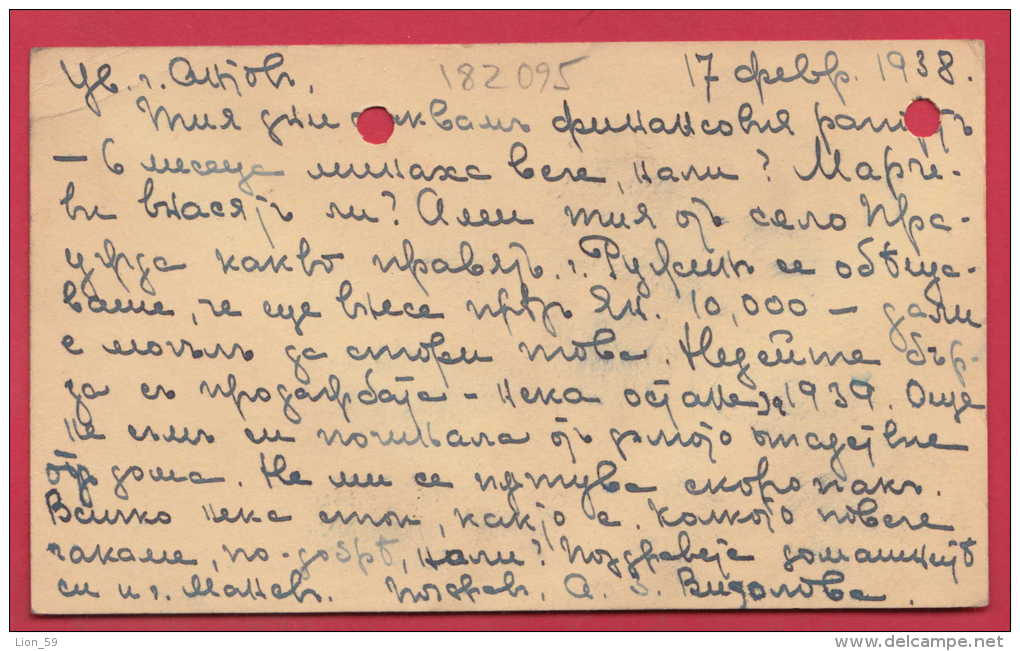 Ув. г. Антовъ, 182095 17 февр. 1938.
Тия дни чаквамъ финансовия рапортъ
– 6 месеца минаха вече, нали? Марче-
ви внасятъ ли? Ами тия отъ село
какво правятъ. г. се обѣща-
ваше, че ще внесе прѣзъ Ян. 10,000 – дали
е могълъ да стори това. Недейте бър-
за съ продажбата – нека остане за 1939. Още
не съмъ си почивала отъ дългото отсѫтствие
отъ дома. Не ми се пѫтува скоро пакъ.
Всичко нека стои, както е. Колкото повече
чакаме, по-добрѣ, нали? Поздравете домашнитѣ
си и г. Манев. Поздрав, А. З. Видолова.
Lion_59
www.delcampe.net